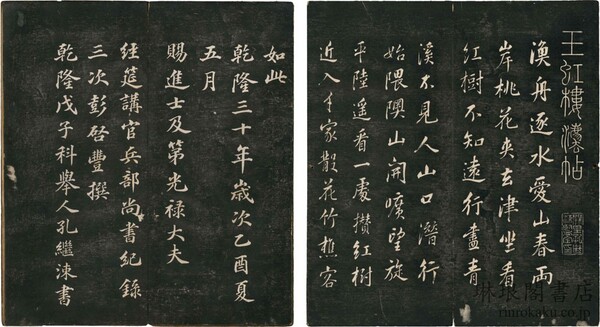 玉虹樓灋帖
漁舟逐水愛山春兩
岸桃花夾去津坐看
紅樹不知遠行盡青
溪不見人山口潛行
始隈隩山開曠望旋
平陸遙看一處攢紅樹
近入千家散花竹樵客
如此
乾隆三十年歲次乙酉夏
五月
賜進士及第光祿大夫
經筵講官兵部尚書紀錄
三次彭啓豐撰
乾隆戊子科舉人孔繼涑書
琳琅閣書店
rinrokaku.co.jp